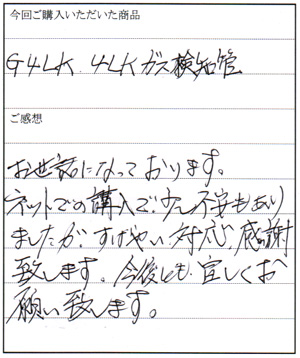 今回ご購入いただいた商品
G4LK. 4LKガス検知管
ご感想
お世話になっております。
ネットでの購入で少し不安もあり
ましたが、すばやい対応、感謝
致します。今後とも宜しくお
願い致します。